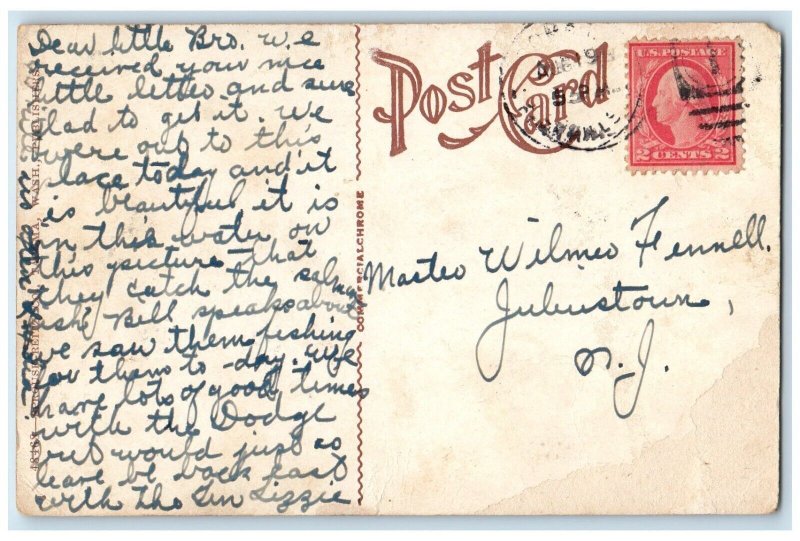 Dear little Bro. We
received your nice
little letter and sure
glad to get it. We
were out to this
place today and it
is beautiful it is
in this water on
this picture that
they catch the salmon
fish Bill speaks about
we saw them fishing
for them to-day. We
have lots of good times
with the Dodge
but would just so
leave be back east
with the Tin Lizzie
Post Card
COMMERCIALCHROME
U.S. POSTAGE
2 CENTS 2
Master Wilmer Fennell.
Juliustown,
N.J.
WASH., PUBLISHERS